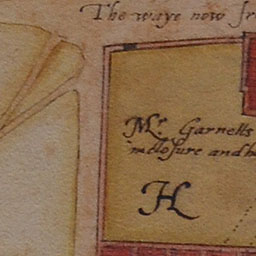 The waye now fr
Mr Garnetts
inclosure and h
H